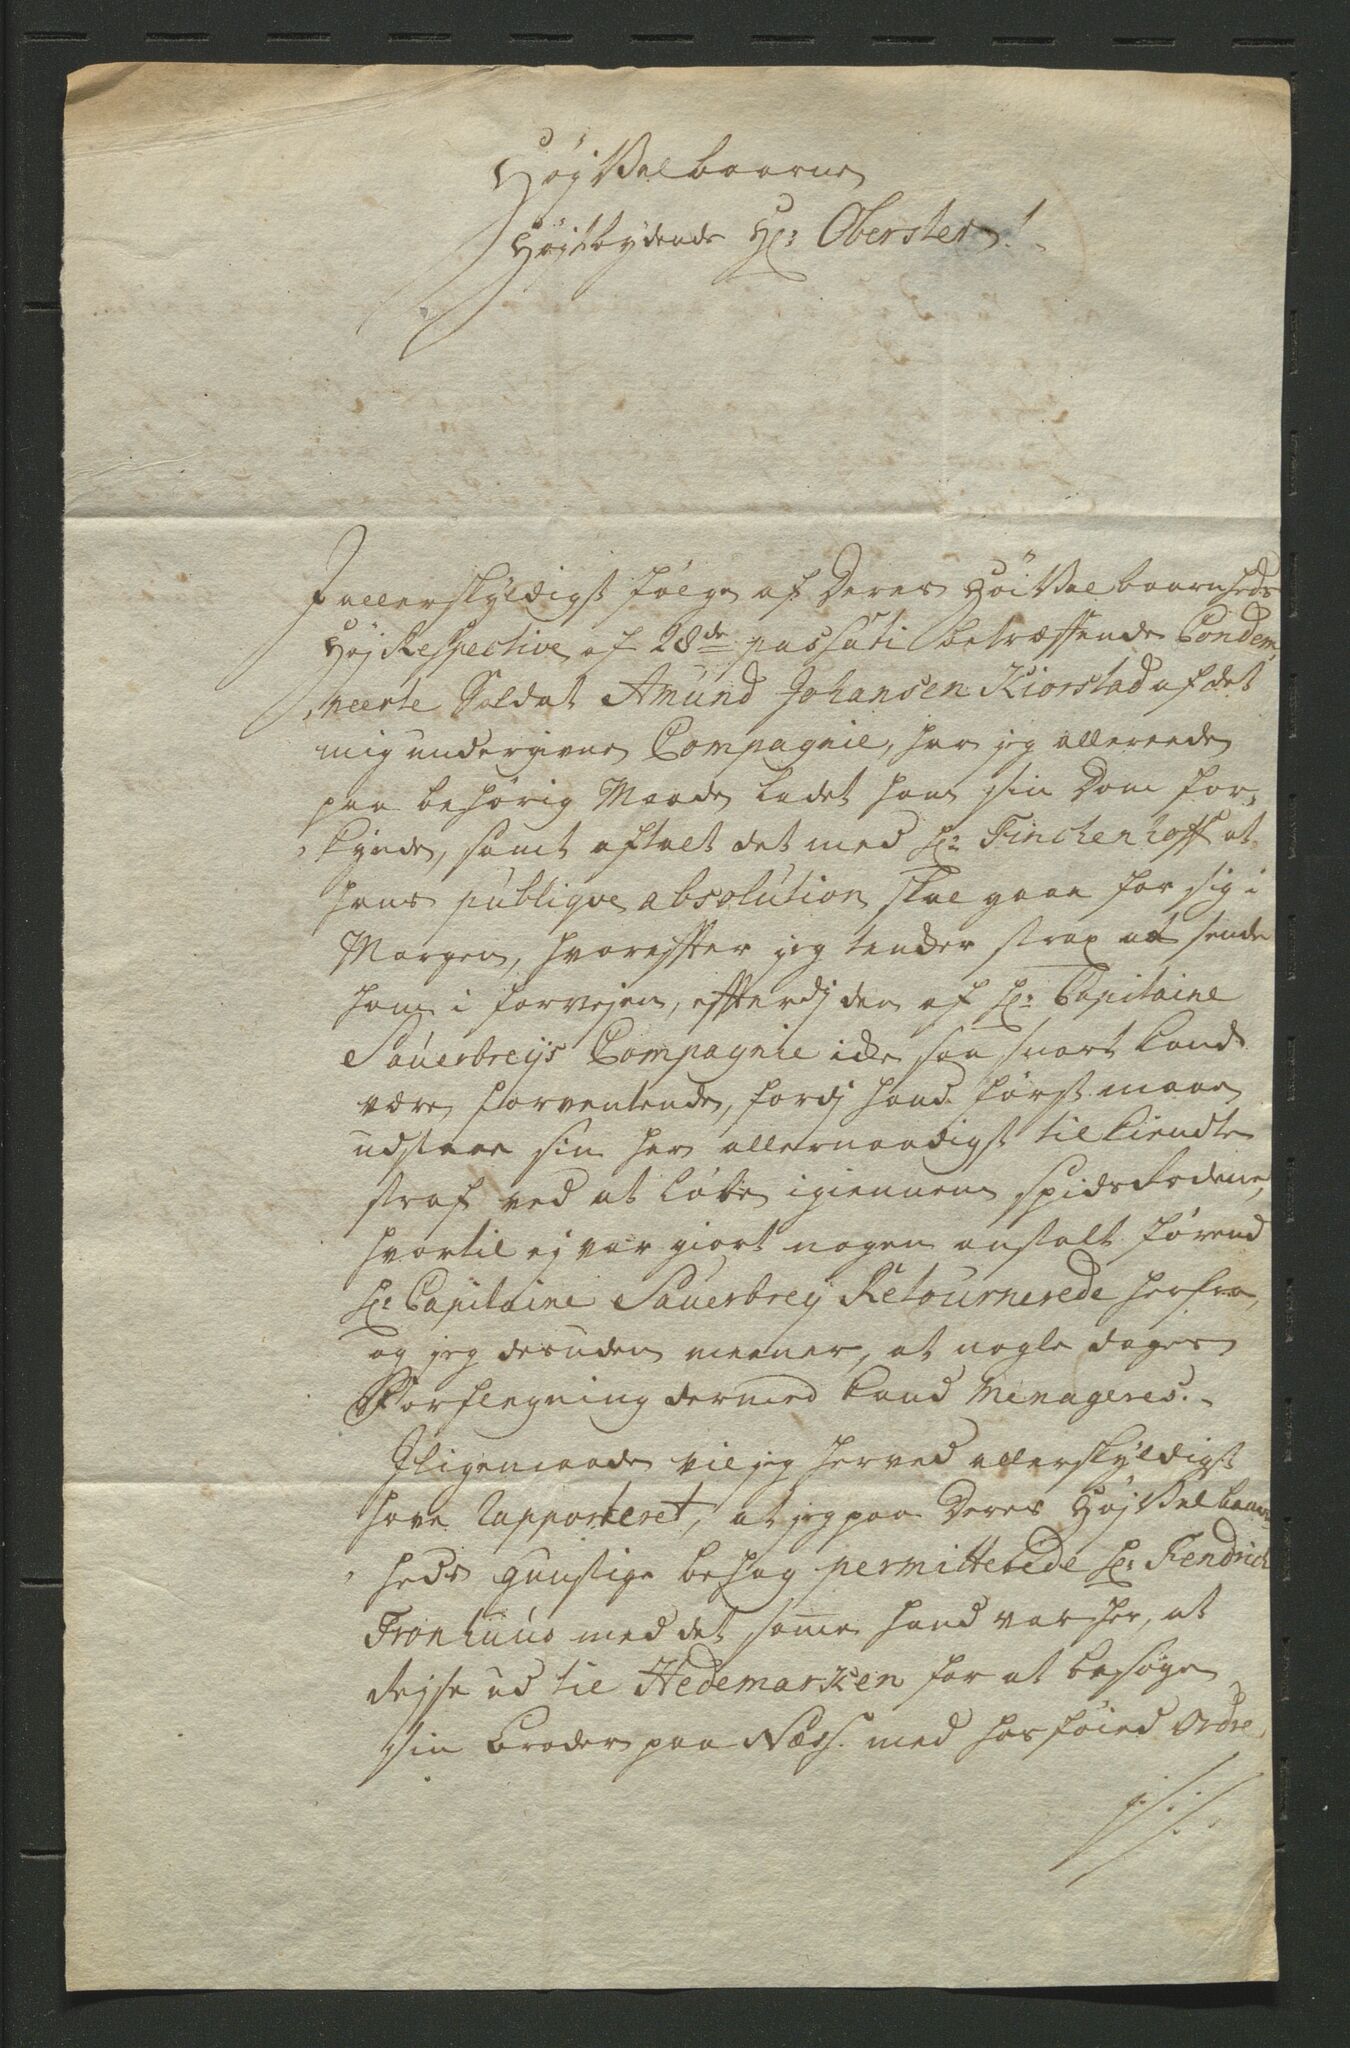 HøjVelbaarne
Højstbydende Hr: Oberster!
I allerskyldigst følge af Deres HøiVelbaarnheds
Høj Respective af 28de passati betræffende Condem,
neerte Soldat Amund Johansen Kiorstad af det
mig undergivne Compagnie, har jeg allereede
paa behørig Maade ladet ham sin Dom for,
kynde, samt aftalt det med Hr: Finchenhoff at
hans publiqve absolution skal gaae for sig i
Morgen, hvoreffter jeg tenker strax at sende
ham i forvejen, effterdj den af Hr: Capitaine
Sauerbreys Compagnie ikke saa snart kand
være forventende, fordj hand først maae
udstaae sin her allernaadigst tilkiendte
straf ved at løbe igiennem spidsrodene,
hvortil ej var giort nogen anstalt førend
Hr: Capitaine Sauerbrey Retournerede herfra,
og jeg desuden meener, at nogle dages
Forplegning dermed kand Menageres.
Iligemaade vil jeg herved allerskyldigst
have Rapporteret, at jeg paa Deres HøjVelbaarn
heds gunstige behag permitterede Hr: Fendrich
Fronhuus med det samme hand var her, at
rejse ud til Hedemarken for at besøge
sin Broder paa Næss. med hosføied Ordre,